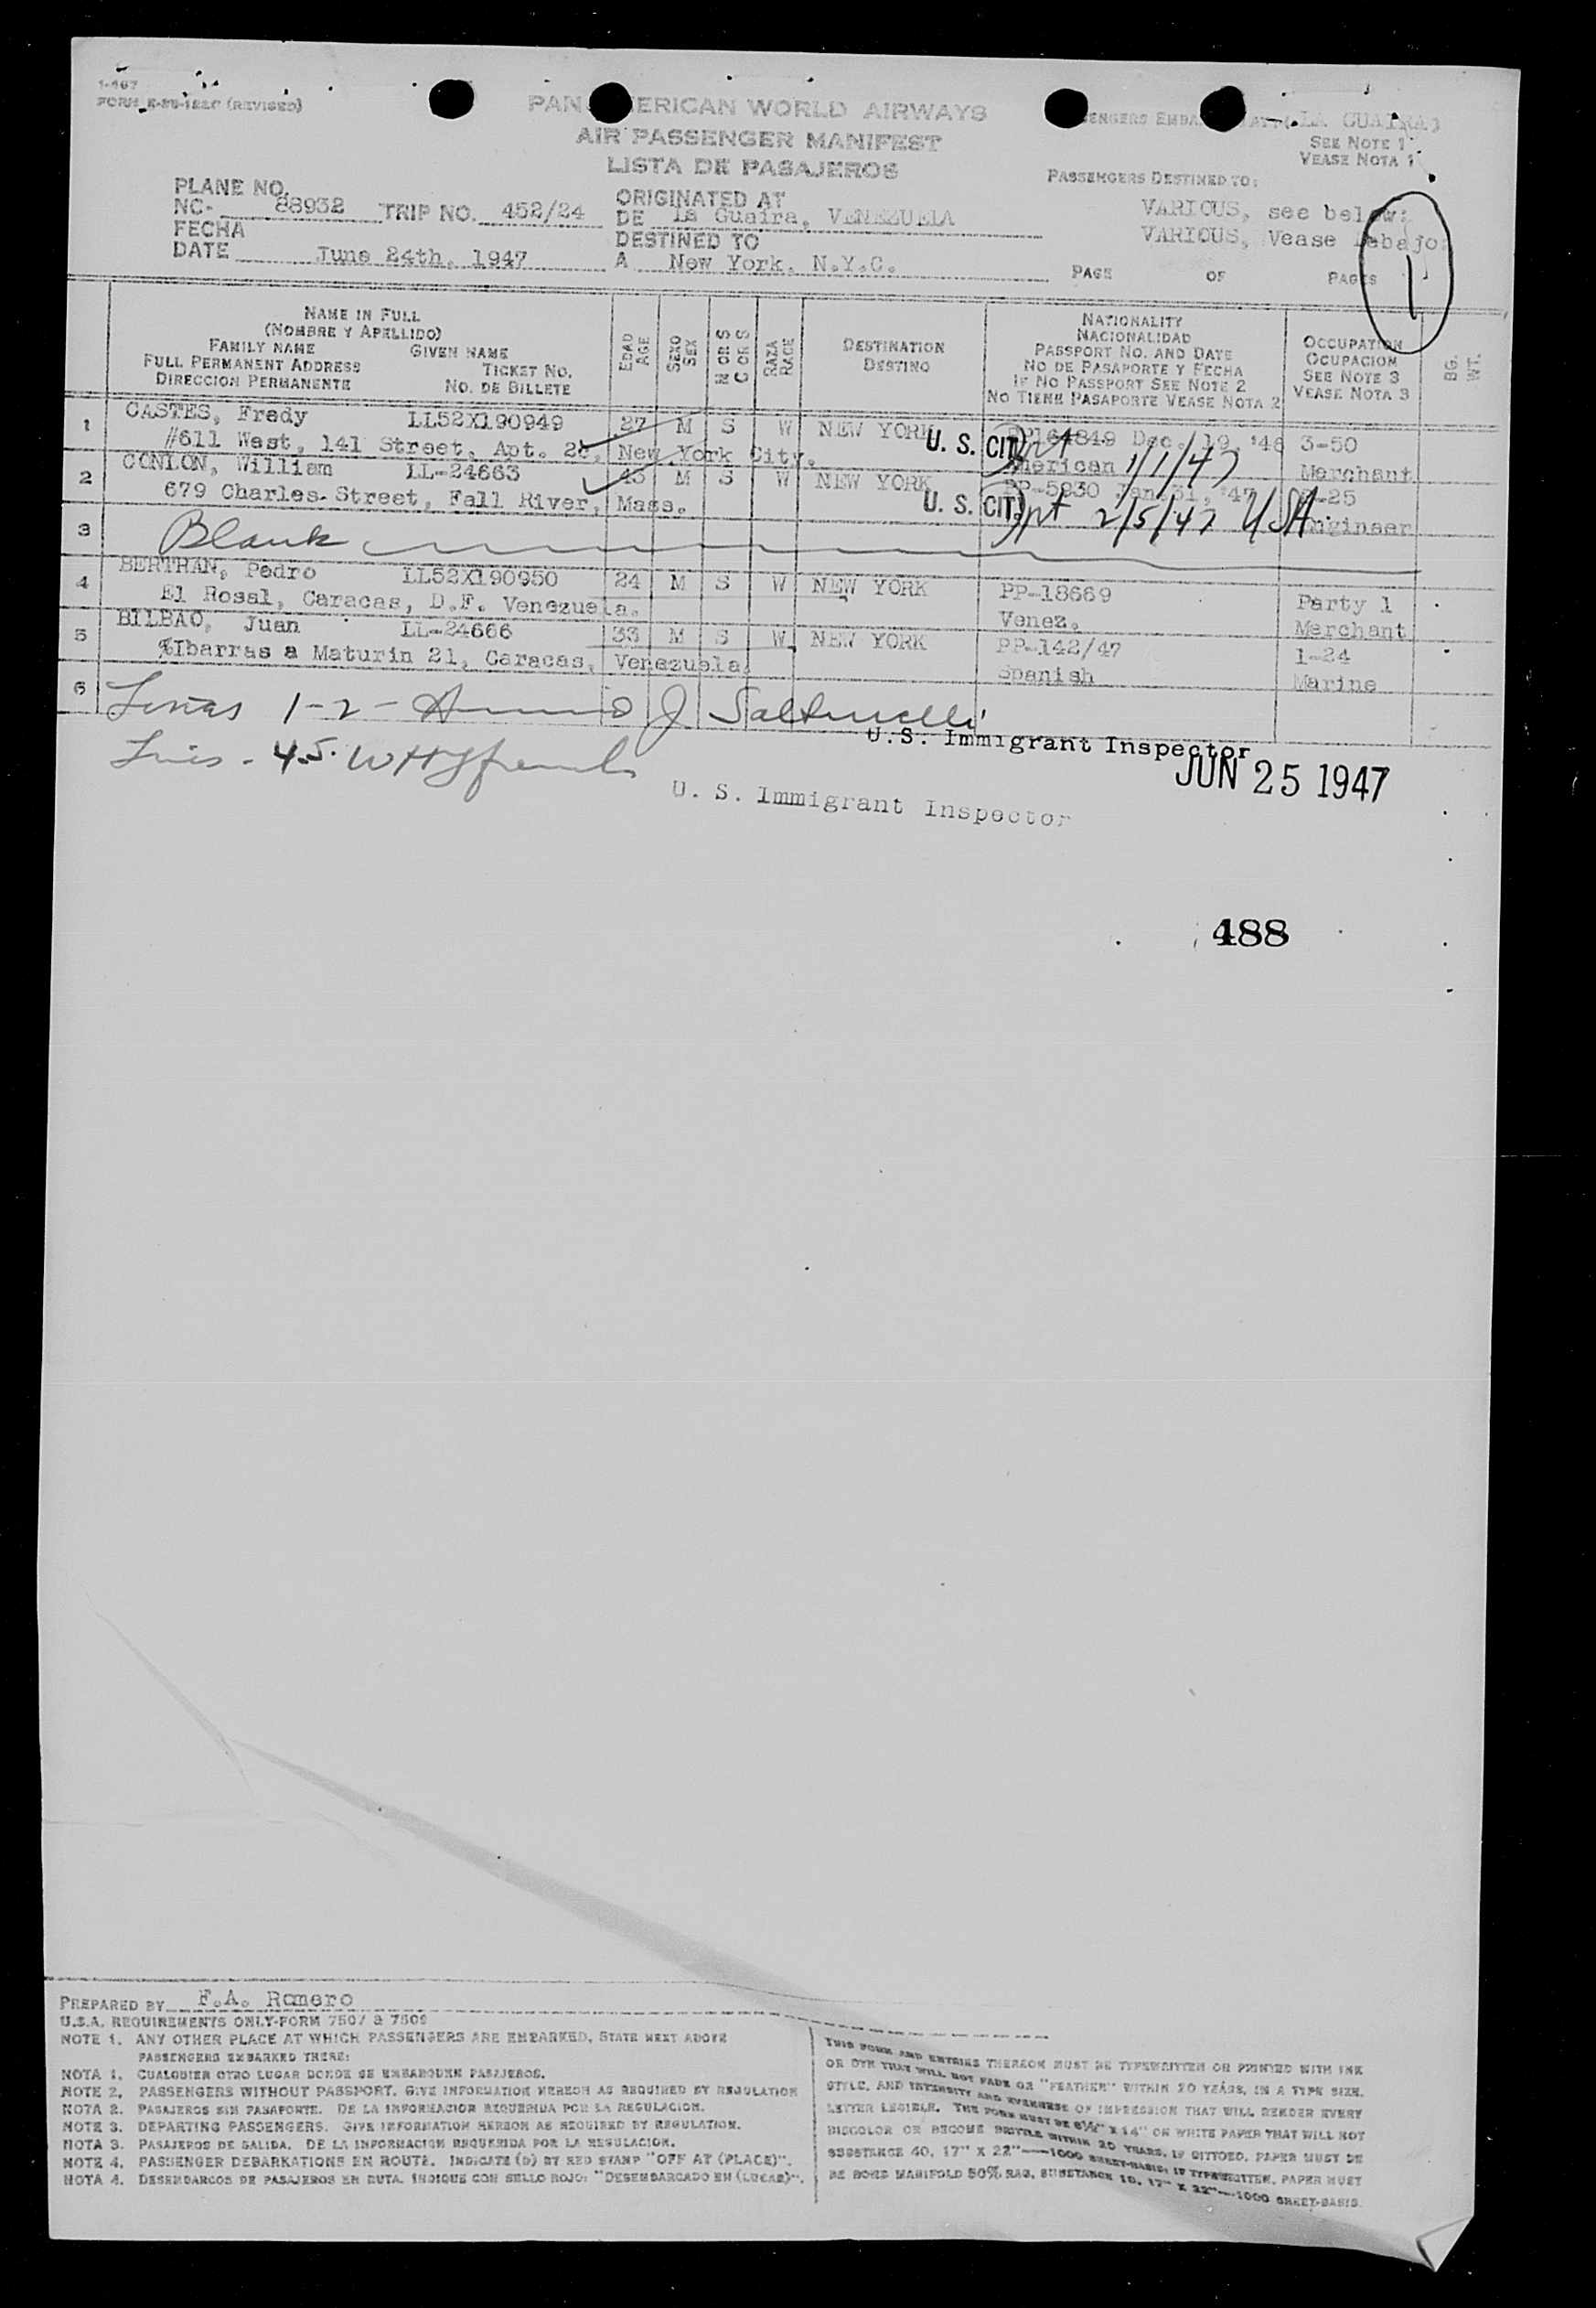 1-467
FORM E-86-122C (REVISED)
PAN AMERICAN WORLD AIRWAYS
AIR PASSENGER MANIFEST
LISTA DE PASAJEROS
PASSENGERS EMBARKED AT (LA GUAIRA)
SEE NOTE 1
VEASE NOTA 1
PASSENGERS DESTINED TO:
VARIOUS, see below:
VARIOUS, Vease Debajo:
PLANE NO.
NC- 88932 TRIP NO. 452/24
FECHA
DATE June 24th, 1947
ORIGINATED AT
DE La Guaira, VENEZUELA
DESTINED TO
A New York, N.Y.C.
PAGE OF PAGES 1
NAME IN FULL
(NOMBRE Y APELLIDO)
FAMILY NAME GIVEN NAME
FULL PERMANENT ADDRESS TICKET NO.
DIRECCION PERMANENTE NO. DE BILLETE
EDAD AGE
SEXO SEX
N OR S
C OR S
RAZA RACE
DESTINATION
DESTINO
NATIONALITY
NACIONALIDAD
PASSPORT NO. AND DATE
NO DE PASAPORTE Y FECHA
IF NO PASSPORT SEE NOTE 2
NO TIENE PASAPORTE VEASE NOTA 2
OCCUPATION
OCUPACION
SEE NOTE 3
VEASE NOTA 3
BG. WT.
1 CASTES, Fredy LL52X190949 27 M S W NEW YORK PP164849 Dec. 19, '46 3-50
#611 West, 141 Street, Apt. 2C, New York City. U. S. CIT. American 1/1/47 Merchant
2 CONLON, William LL-24663 45 M S W NEW YORK PP-5930 Jan.31, '47 -25
679 Charles Street, Fall River, Mass. U. S. CIT. ppt 2/5/47 USA Engineer
3 Blank
4 BERTRAN, Pedro LL52X190950 24 M S W NEW YORK PP-18669 Party 1
El Rosal, Caracas, D.F. Venezuela. Venez. Merchant
5 BILBAO, Juan LL-24666 33 M S W NEW YORK PP-142/47 1-24
%Ibarras a Maturin 21, Caracas, Venezuela. Spanish Marine
6 Lines 1-2- J Saltinelli
U.S. Immigrant Inspector
Lines - 4-5.
JUN 25 1947
U. S. Immigrant Inspector
488
PREPARED BY F.A. Romero
U.S.A. REQUIREMENTS ONLY-FORM 7507 & 7509
NOTE 1. ANY OTHER PLACE AT WHICH PASSENGERS ARE EMBARKED, STATE NEXT ABOVE
PASSENGERS EMBARKED THERE:
NOTA 1. CUALQUIER OTRO LUGAR DONDE SE EMBARQUEN PASAJEROS.
NOTE 2. PASSENGERS WITHOUT PASSPORT. GIVE INFORMATION HEREON AS REQUIRED BY REGULATION
NOTA 2. PASAJEROS SIN PASAPORTE. DE LA INFORMACION REQUERIDA POR LA REGULACION.
NOTE 3. DEPARTING PASSENGERS. GIVE INFORMATION HEREON AS REQUIRED BY REGULATION.
NOTA 3. PASAJEROS DE SALIDA. DE LA INFORMACION REQUERIDA POR LA REGULACION.
NOTE 4. PASSENGER DEBARKATIONS EN ROUTE. INDICATE (D) BY RED STAMP "OFF AT (PLACE)".
NOTA 4. DESEMBARCOS DE PASAJEROS EN RUTA. INDIQUE CON SELLO ROJO: "DESEMBARCADO EN (LUGAR)".
THIS FORM AND ENTRIES THEREON MUST BE TYPEWRITTEN OR PRINTED WITH INK
OR DYE THAT WILL NOT FADE OR "FEATHER" WITHIN 20 YEARS, IN A TYPE SIZE,
STYLE, AND INTENSITY AND EVENNESS OF IMPRESSION THAT WILL RENDER EVERY
LETTER LEGIBLE. THE FORM MUST BE 8½" X 14" ON WHITE PAPER THAT WILL NOT
DISCOLOR OR BECOME BRITTLE WITHIN 20 YEARS. IF DITTOED, PAPER MUST BE
SUBSTANCE 40, 17" X 22"—1000 SHEET-BASIS; IF TYPEWRITTEN, PAPER MUST
BE BOND MANIFOLD 50% RAG, SUBSTANCE 10, 17" X 22"—1000 SHEET-BASIS.